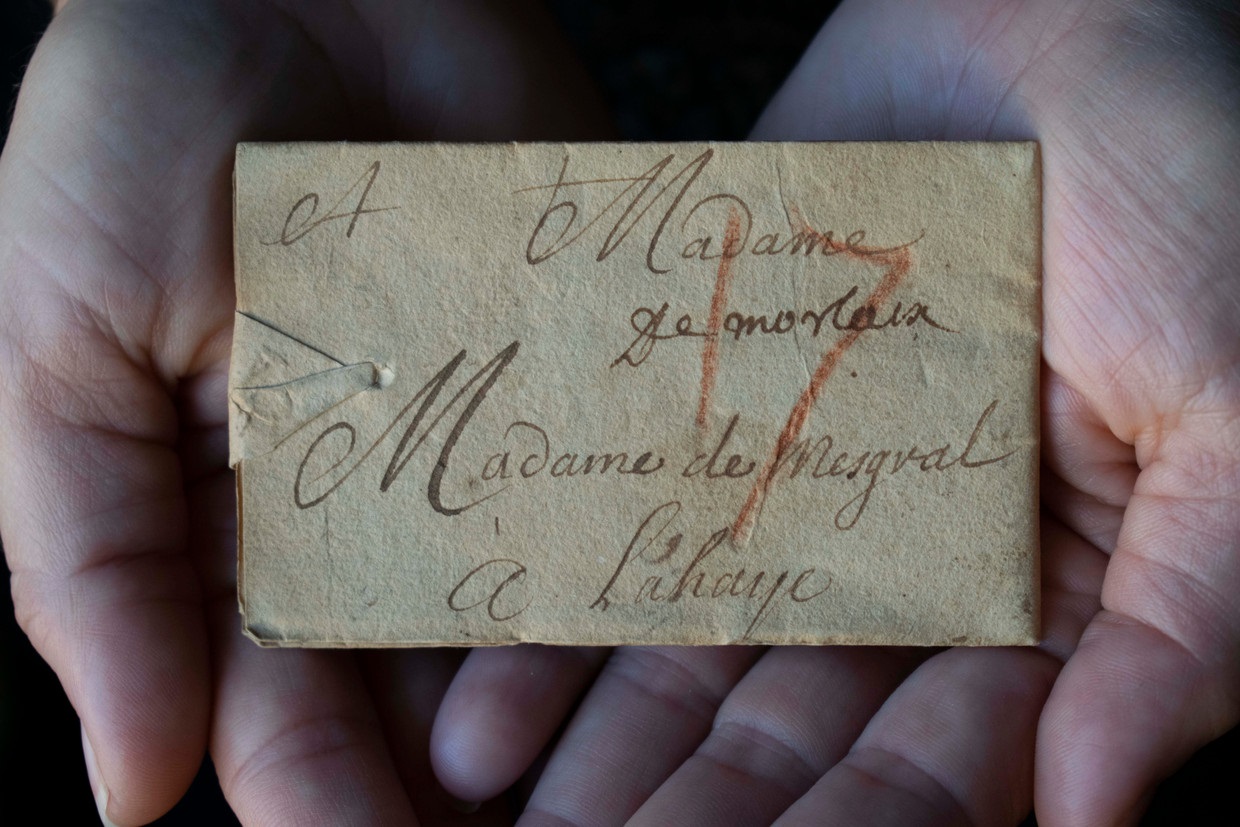 A Madame
De morlaix
17
Madame de Mesgral
a Lahaye